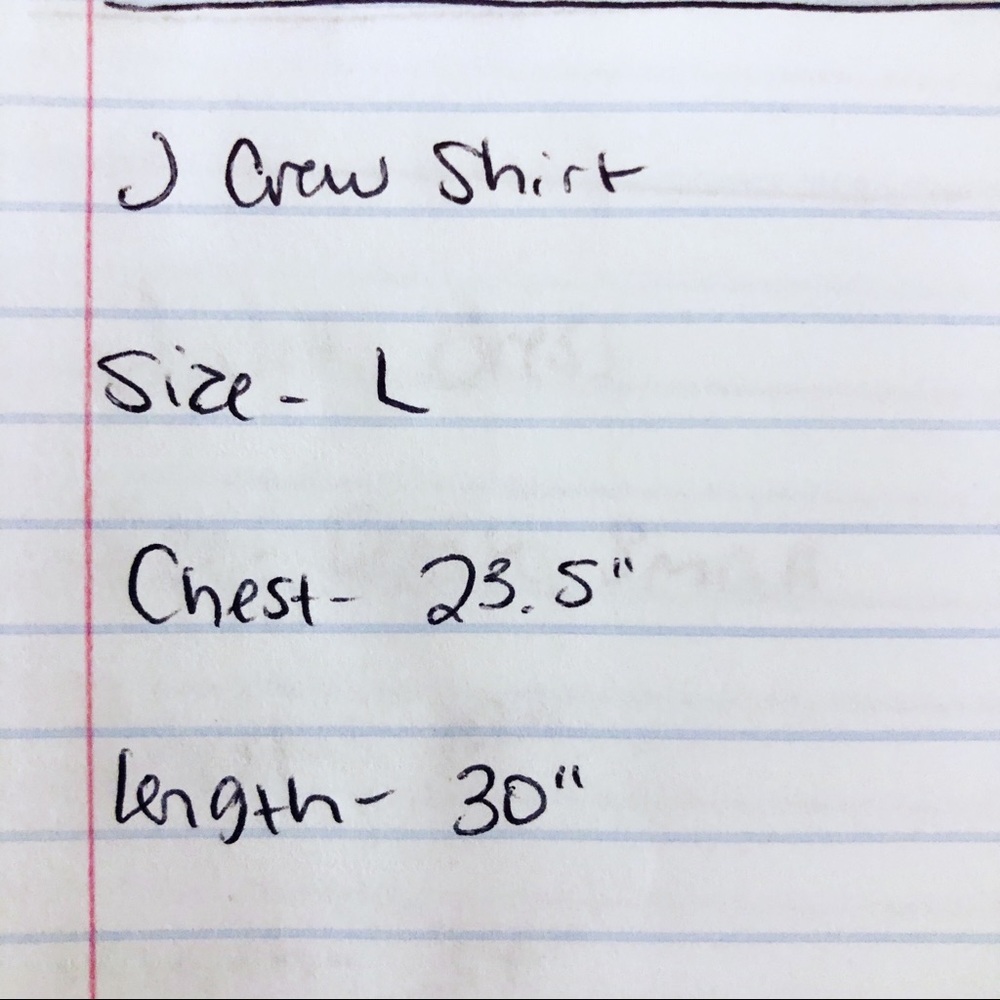 J Crew Shirt
Size - L
Chest - 23.5"
length - 30"